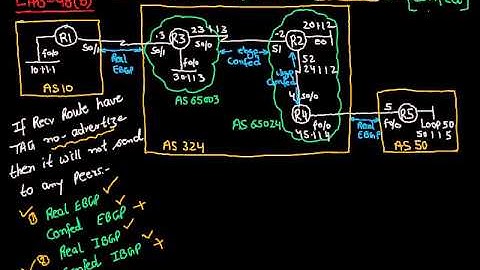 [Confed]
R1
S0/1
f0/0
10.1.1.1
AS10
Real
EBGP
.3
R3
23.4.1.3
S0/1
S0/0
f0/0
30.1.1.3
AS 65003
ebgp
Confed
.2
R2
20.1.1.2
e0/1
S1
S2
24.1.1.2
ibgp
Confed
AS 65024
4
S0/0
R4
f0/0
45.1.1.4
AS 324
Real
EBGP
5
R5
f0/0
Loop 50
50.1.1.5
AS 50
If Recv Route have
TAG no-advertize
then it will not send
to any Peers:-
① Real EBGP ✓
Confed EBGP ✓
② Real IBGP ✓
Confed IBGP ✓